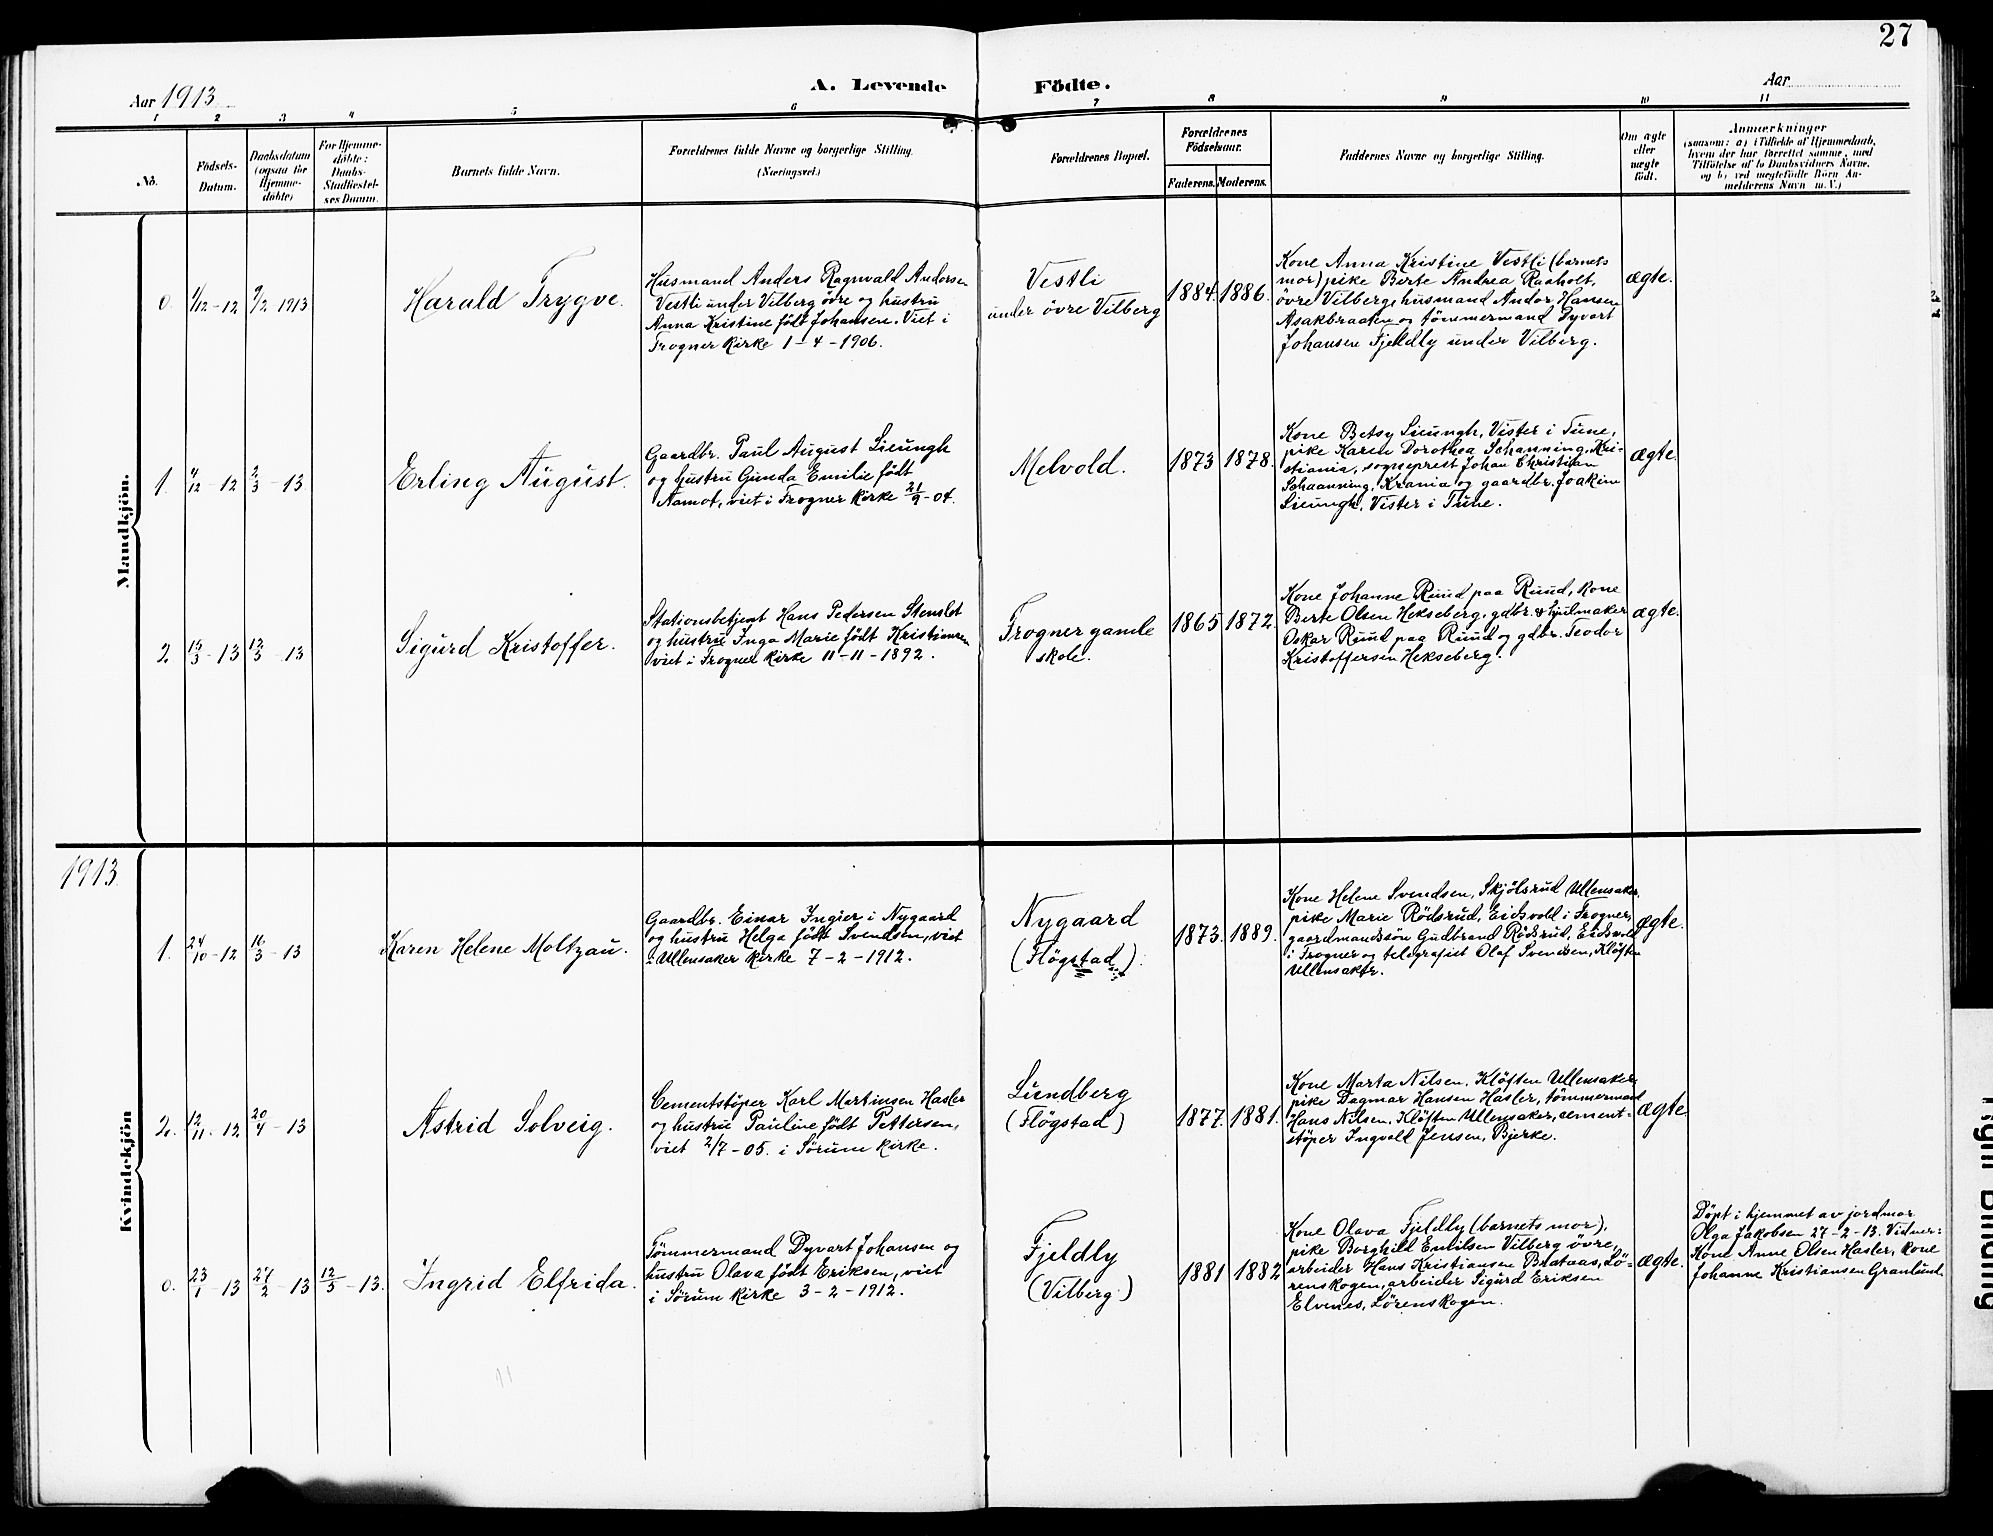 27
Aar 1913
A. Levende Födte.
Aar
1 2 3 4 5 6 7 8 9 10 11
No.
Födsels-
Datum.
Daabsdatum
(ogsaa for
Hjemme-
döbte)
For Hjemme-
döbte:
Daabs-
Stadfæstel-
ses Datum.
Barnets fulde Navn.
Forældrenes fulde Navne og borgerlige Stilling.
(Næringsvei.)
Forældrenes Bopæl.
Forældrenes
Födselsaar.
Faderens. Moderens.
Faddernes Navne og borgerlige Stilling.
Om ægte
eller
uægte
födt.
Anmærkninger
(saasom: a) i Tilfælde af Hjemmedaab,
hvem der har forrettet samme, med
Tilföielse af to Daabsvidners Navne,
og b) ved uægtefödte Börn An-
melderens Navn m.V.)
Mandkjön.
0. 4/12-12 9/2 1913
Harald Trygve.
Husmand Anders Ragnvald Andersen
Vestli under Vilberg övre og hustru
Anna Kristine födt Johansen. Viet i
Frogner kirke 1-4-1906.
Vestli
under övre Vilberg
1884. 1886.
Kone Anna Kristine Vestli (barnets
mor) pike Berte Andrea Raaholt,
övre Vilberg, husmand Andor Hansen
Asakbraaten og tömmermand Dyvart
Johansen Fjeldly under Vilberg.
ægte.
1. 4/12-12 2/3-13
Erling August.
Gaardbr. Paul August Sieungh
og hustru Gunda Emilie födt
Aamot, viet i Frogner kirke 21/9-04.
Melvold.
1873 1878.
Kone Betsy Sieungh, Vister i Tune,
pike Karen Dorothea Schanning, Kri-
stiania, sogneprest Johan Christian
Schaanning, Krania og gaardbr. Joakim
Sieungh, Vister i Tune.
ægte.
2. 15/3-13 12/3-13
Sigurd Kristoffer.
Stationsbetjent Hans Pedersen Stenslet
og hustru Inga Marie födt Kristiansen
viet i Frogner kirke 11-11-1892.
Frogner gamle
skole.
1865 1872
Kone Johanne Ruud paa Ruud, kone
Berte Olsen Hekseberg, gdbr. & hjulmaker
Oskar Ruud paa Ruud og gdbr. Teodor
Kristoffersen Hekseberg.
ægte.
1913
Kvindekjön
1. 24/10-12 16/3-13
Karen Helene Moltzau.
Gaardbr. Einar Ingier i Nygaard
og hustru Helga födt Svendsen, viet
i Ullensaker kirke 7-2-1912.
Nygaard
(Flögstad).
1873. 1889.
Kone Helene Svendsen, Skjölsrud Ullensaker,
pike Marie Rödsrud, Eidsvold i Frogner,
gaardmandssön Gudbrand Rödsrud, Eidsvold
i Frogner og telegrafist Olaf Svendsen, Klöften
Ullensaker.
ægte.
2. 12/11-12 20/4-13
Astrid Solveig.
Cementstöper Karl Martinsen Hasler
og hustru Pauline födt Pettersen,
viet 2/7-05. i Sörum kirke.
Lundberg
(Flögstad)
1877. 1881.
Kone Marta Nilsen, Klöften Ullensaker,
pike Dagmar Hansen Hasler, tömmermand
Hans Nilsen, Klöften Ullensaker, cement-
stöper Ingvald Jensen, Bjerke.
ægte
0. 23/1-13 27/2-13 12/5-13.
Ingrid Elfrida.
Tömmermand Dyvart Johansen og
hustru Olava födt Eriksen, viet
i Sörum kirke 3-2-1912.
Fjeldly
(Vilberg.)
1881 1882
Kone Olava Fjeldly (barnets mor),
pike Borghild Emilsen Vilberg övre,
arbeider Hans Kristiansen Brataas, Lö-
renskogen, arbeider Sigurd Eriksen
Elvenes, Lörenskogen.
ægte.
Döpt i hjemmet av jordmor
Olga Jakobsen 27-2-13. Vidner:
Kone Anne Olsen Hasler, kone
Johanne Kristiansen Granlund